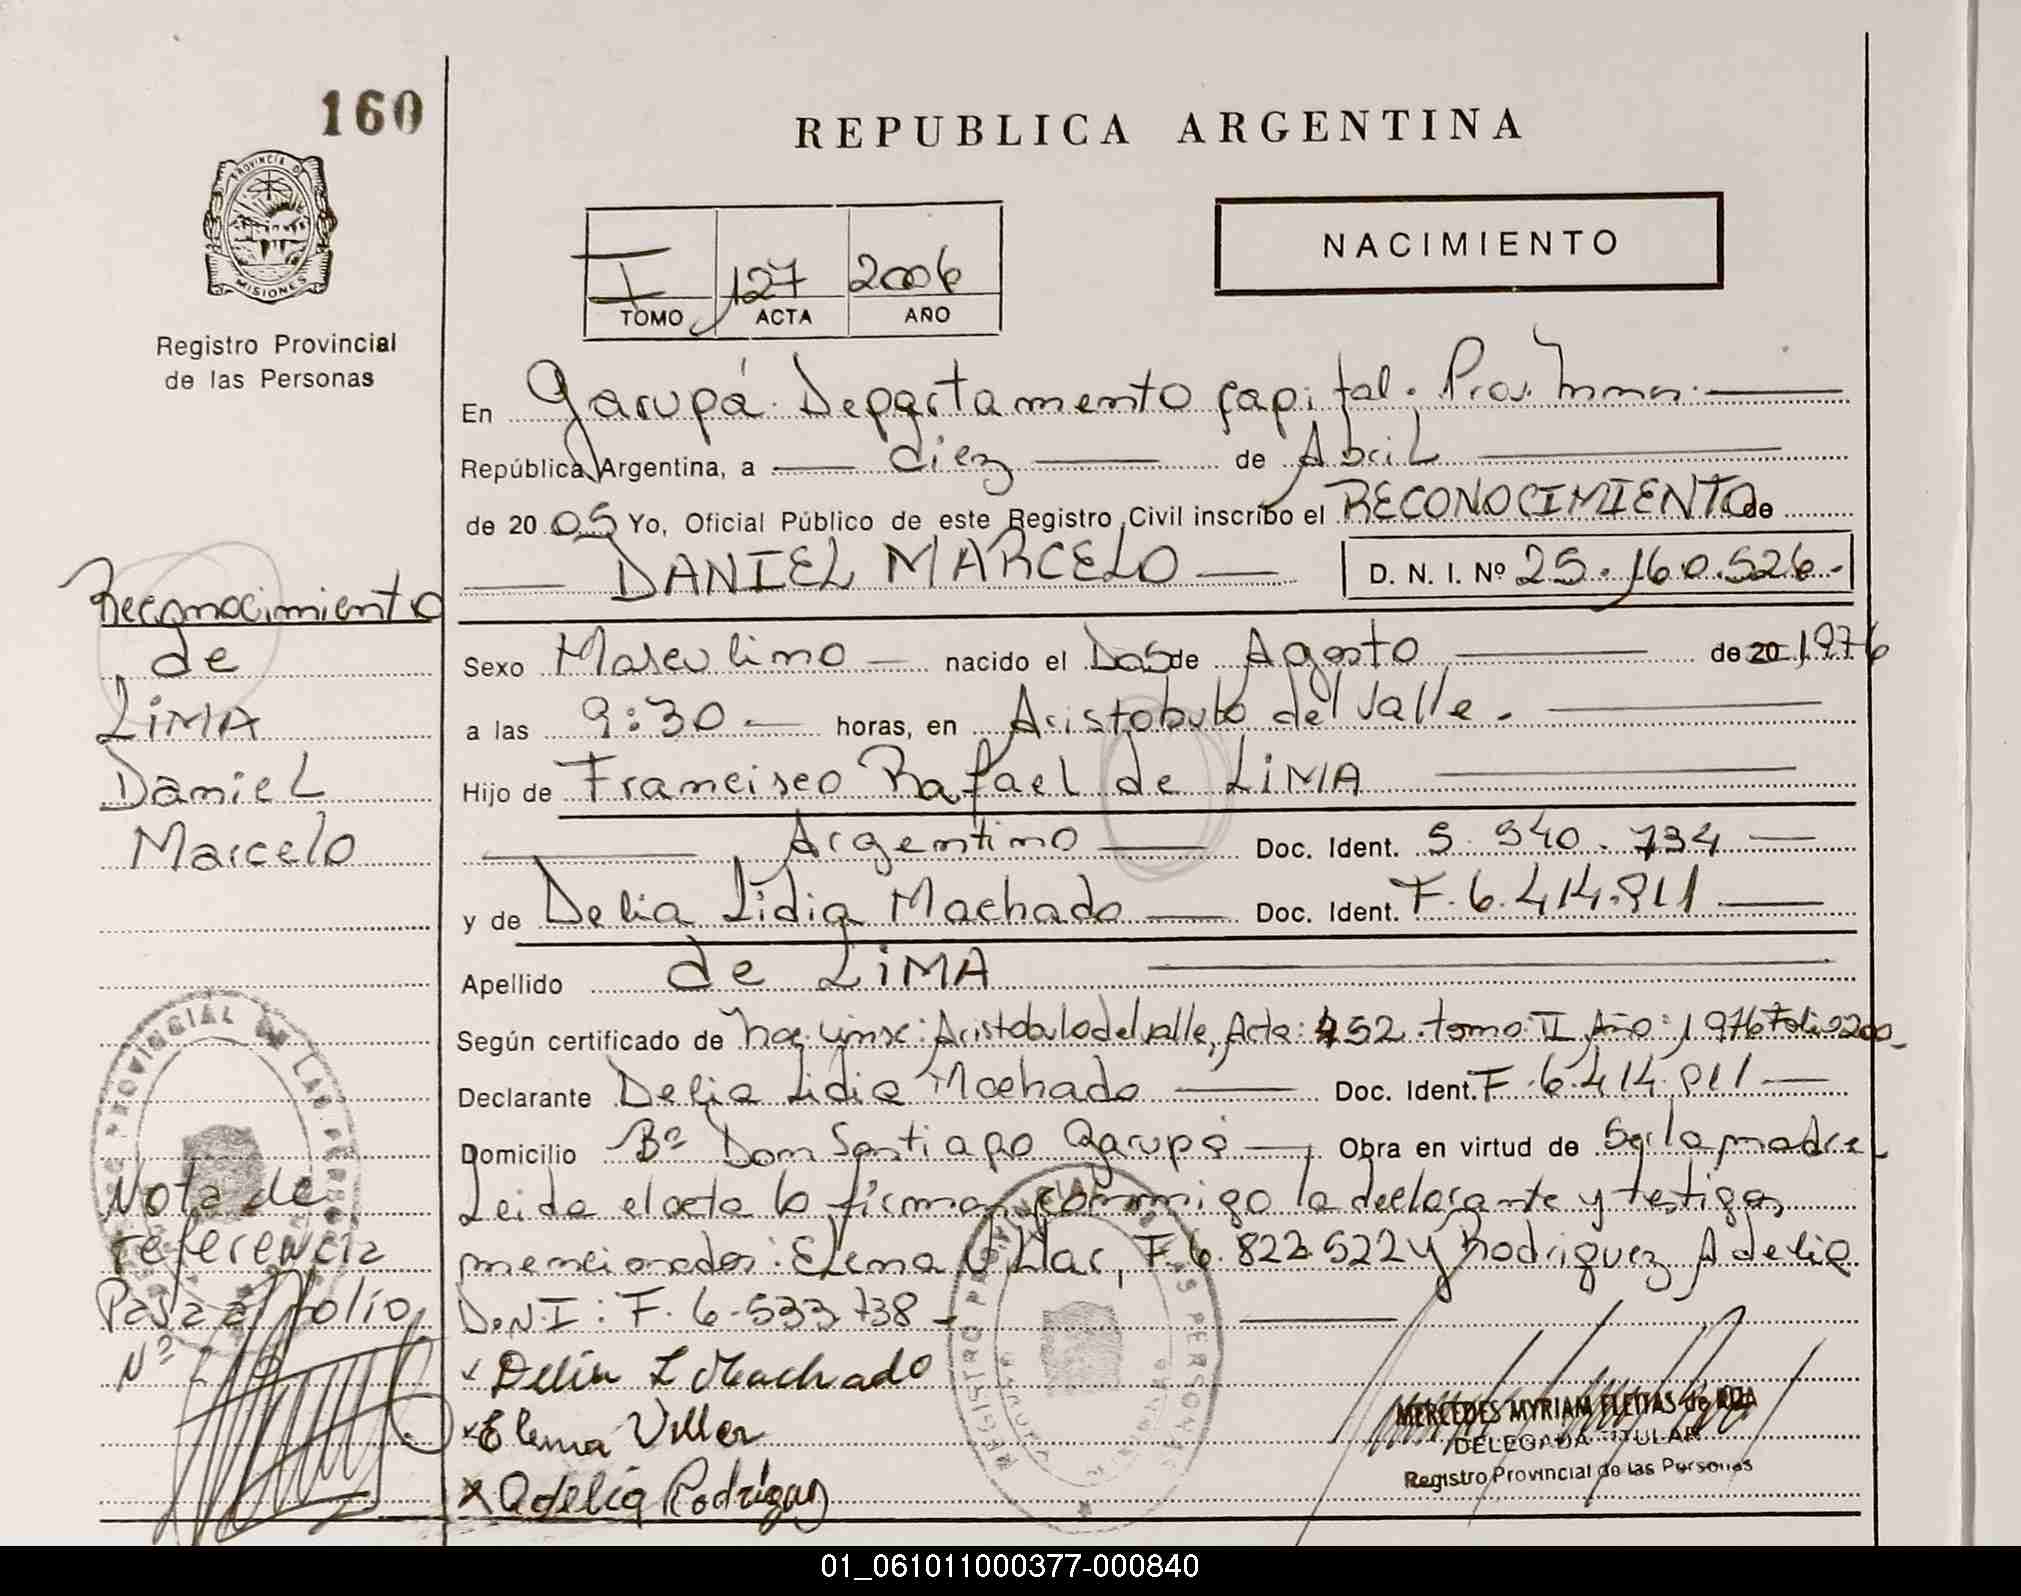 160
REPUBLICA ARGENTINA
PROVINCIA DE
MISIONES
Registro Provincial
de las Personas
I 127 2006
TOMO ACTA AÑO
NACIMIENTO
En Garupá. Departamento Capital. Prov.
República Argentina, a diez de Abril
de 2005 Yo, Oficial Público de este Registro Civil inscribo el RECONOCIMIENTO de
DANIEL MARCELO D. N. I. Nº 25.160.526.-
Reconocimiento
de
LiMA
Daniel
Marcelo
Sexo Masculino nacido el Dos de Agosto de 20 1976
a las 9:30 horas, en Aristobulo del Valle.
Hijo de Francisco Rafael de LiMA
Argentino Doc. Ident. 5.940.734
y de Delia Lidia Machado Doc. Ident. F.6.414.911
Apellido de LiMA
Según certificado de Aristobulo del Valle, Acta: 452 tomo II Año: 1976 Folio 200
Declarante Delia Lidia Machado Doc. Ident. F.6.414.911
Domicilio Bº Don Santiago Garupá Obra en virtud de Ser la madre
Leida el acta la firman conmigo la declarante y testigos
mencionados: Elena Villar, F.6.822.522 y Rodriguez Adelia
D.N.I: F.6.533.738
Nota de
referencia
Pasa al folio
Nº
Delia L Machado
Elena Viller
Adelia Rodriguez
MERCEDES MYRIAM FLEITAS de
DELEGADA TITULAR
Registro Provincial de las Personas
REGISTRO PROVINCIAL DE LAS PERSONAS
01_061011000377-000840